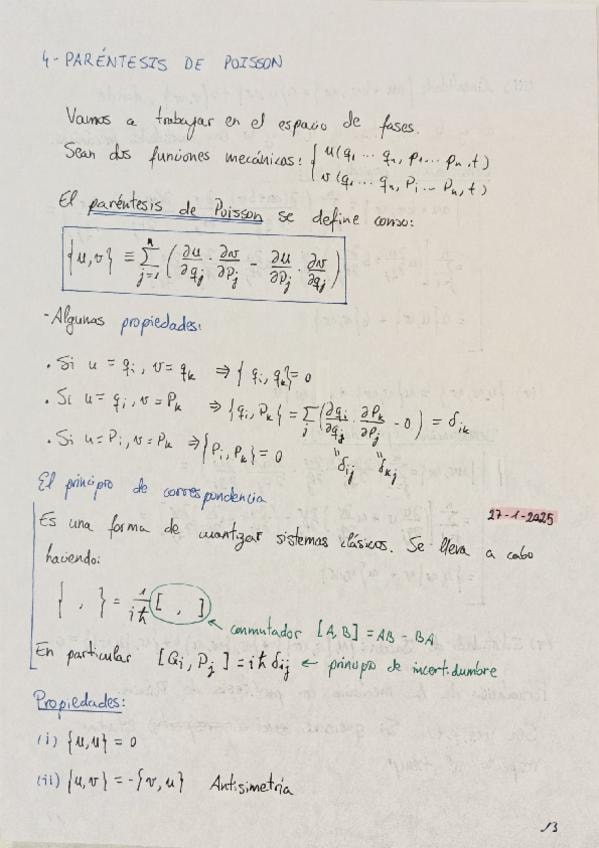 4- PARÉNTESIS DE POISSON
Vamos a trabajar en el espacio de fases.
Sean dos funciones mecánicas: { u(q₁ ... qₙ, p₁ ... pₙ, t)
v(q₁ ... qₙ, p₁ ... pₙ, t)
El paréntesis de Poisson se define como:
{u,v} ≡ ∑_{j=1}^{n} (∂u/∂q_j · ∂v/∂p_j - ∂u/∂p_j · ∂v/∂q_j)
- Algunas propiedades:
· Si u = q_i, v = q_k ⇒ {q_i, q_k} = 0
· Si u = q_i, v = p_k ⇒ {q_i, p_k} = ∑_j (∂q_i/∂q_j · ∂p_k/∂p_j - 0) = δ_ik
" δ_ij " δ_kj
· Si u = p_i, v = p_k ⇒ {p_i, p_k} = 0
El principio de correspondencia
27-1-2025
Es una forma de cuantizar sistemas clásicos. Se lleva a cabo
haciendo:
{ , } = 1/iħ [ , ]
← conmutador [A,B] = AB - BA
En particular [Q_i, P_j] = iħ δ_ij ← principio de incertidumbre
Propiedades:
(i) {u,u} = 0
(ii) {u,v} = -{v,u} Antisimetría
13